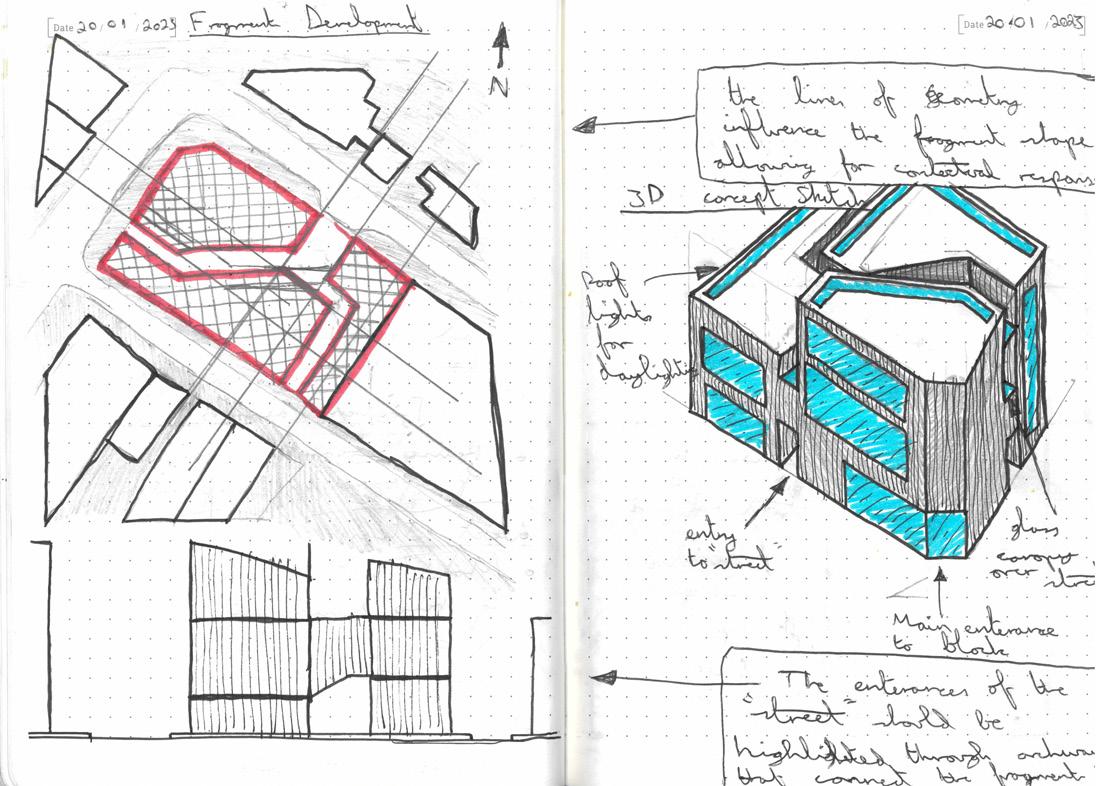 Date 20/01/2023 Fragment Development
N
Date 20/01/2023
the lines of Geometry
influence the fragment shape
allowing for contextual respons
3D concept Sketch
Roof
lights
for
daylighting
entry
to "street"
glass
canopy
over stre
Main enterance
to block
The enterances of the
"street" should be
highlighted through archway
that connect the fragment